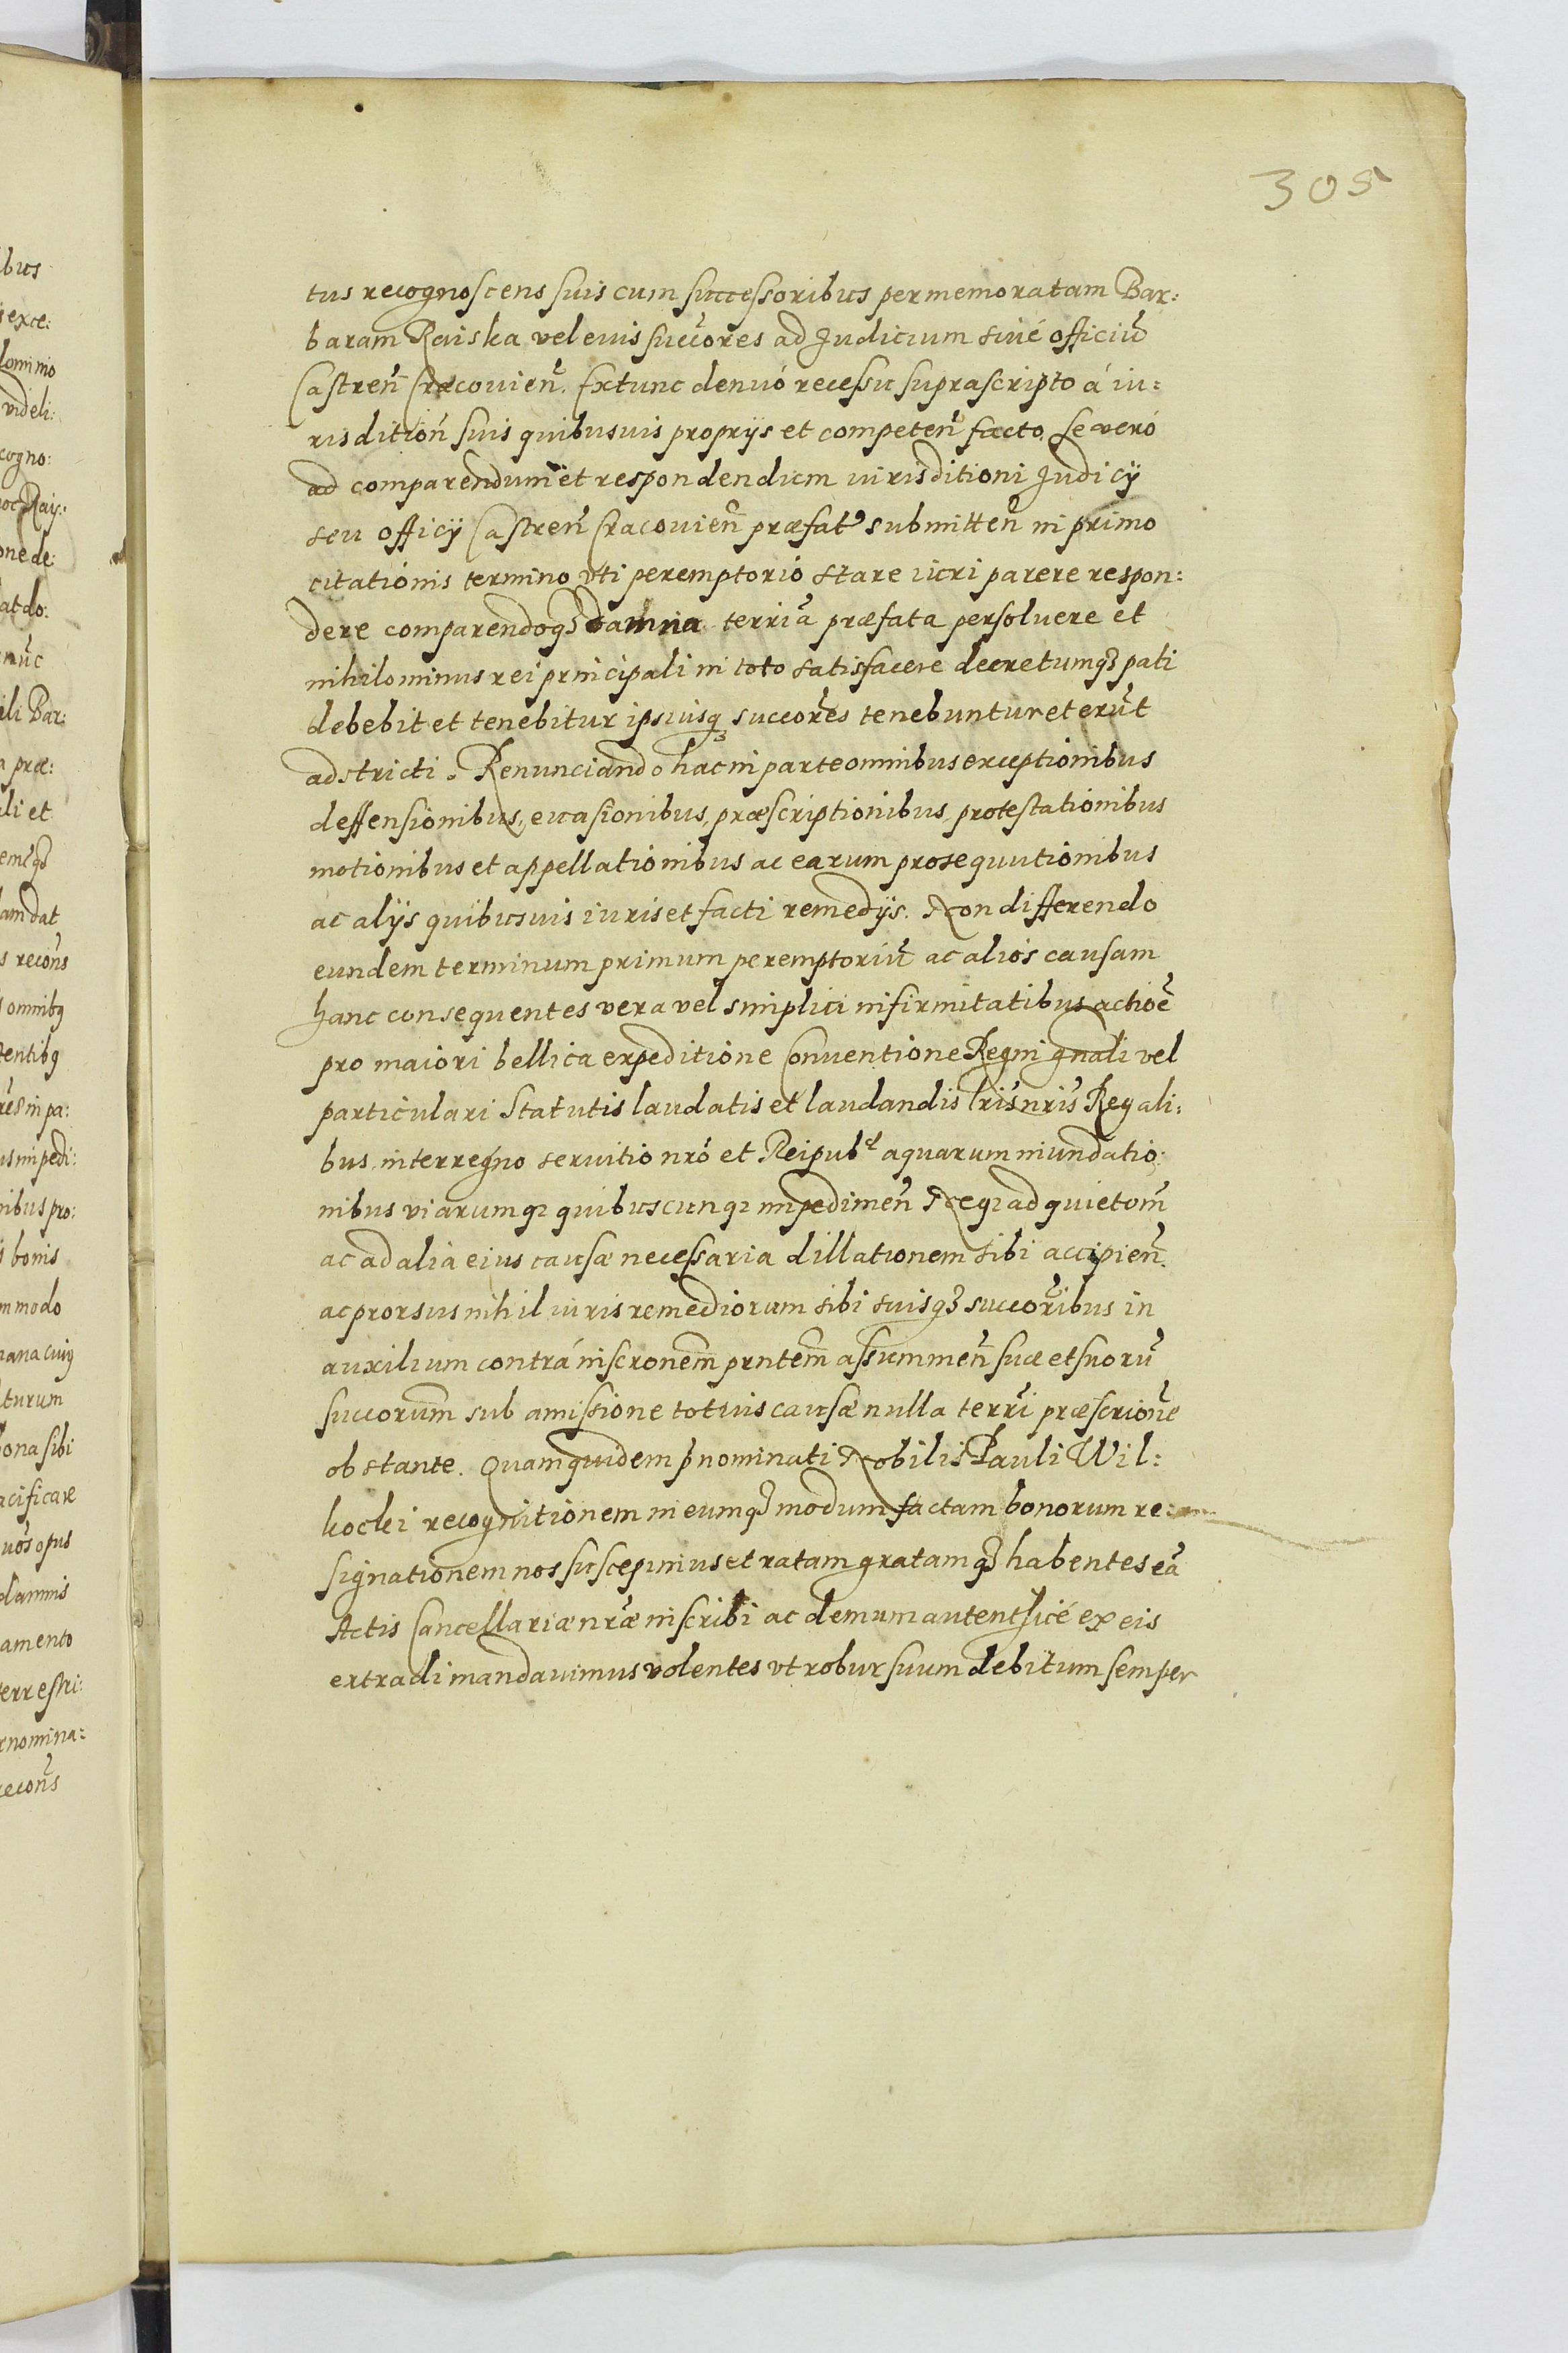 305
tus recognoscens suis cum successoribus per memoratam Bar:
baram Raiska vel eius succ̃ores ad Judicium siué officiũ
Castreñ Cracouieñ. Extunc denuó recessu suprascripto á iu:
risditioñ suis quibusuis proprijs et competeñ facto. Se veró
ad comparendum et respondendum iurisditioni Judicij
seu officij Castreñ Cracouieñ præfat᾽ submitteñ in primo
citationis termino vti peremptorió stare iuri parere respon:
dere comparendoq3 damna terriã præfata persoluere et
nihilominus rei principali in toto satisfacere decretumq3 pati
debebit et tenebitur ipsiusq3 succores̃ tenebuntur et erũt
adstricti. Renunciando hac in parte omnibus exceptionibus
deffensionibus, euasionibus, præscriptionibus, protestationibus
motionibus et appellationibus ac earum prosequutionibus
ac alijs quibusuis iuris et facti remedijs. Non differendo
eundem terminum primum peremptoriũ ac alios causam
hanc consequentes vera vel simplici infirmitatibus actioẽ
pro maiori bellica expeditione Conuentione Regni gnali vel
particulari Statutis laudatis et laudandis Lris nris Regali:
bus, interregno seruitio nró et Reipubᵉ aquarum inundatio:
nibus viarumq3 quibuscunq3 impedimeñ Neq3 ad quietom̃
ac ad alia eius causæ necessaria dillationem sibi accipieñ.
ac prorsus nihil iuris remediorum sibi suisq3 succor̃ibus in
auxilium contrá inscronem̃ prntem̃ assummeñ suæ et suorũ
succorum̃ sub amissione totius causæ nulla terrĩ præscrioñe
obstante. Quamquidem p̃nominati Nobilis Pauli Wil:
kocki recognitionem in eumq3 modum factam bonorum re:
signationem nos suscepimus et ratam gratamq3 habentes eã
Actis Cancellariæ nr̃æ inscribi ac demum autenticé ex eis
extradi mandauimus volentes vt robur suum debitum semper